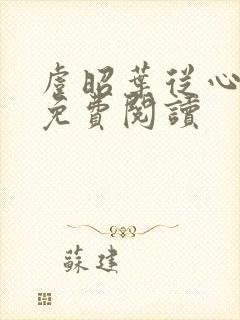 虐昭葉從心
免費閱讀
蘇建